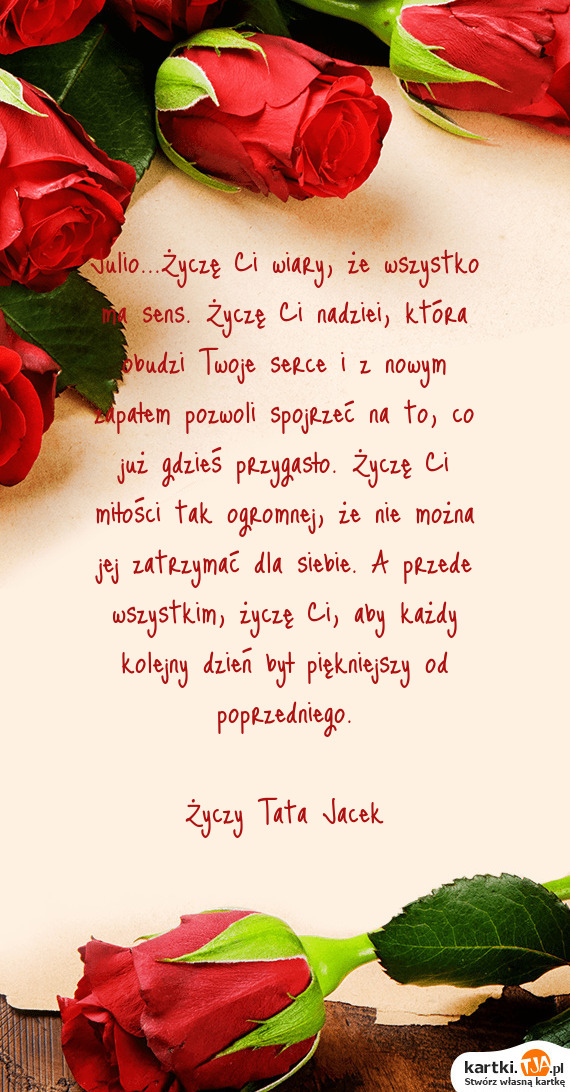 Julio...Życzę Ci wiary, że wszystko
ma sens. Życzę Ci nadziei, która
obudzi Twoje serce i z nowym
zapałem pozwoli spojrzeć na to, co
już gdzieś przygasło. Życzę Ci
miłości tak ogromnej, że nie można
jej zatrzymać dla siebie. A przede
wszystkim, życzę Ci, aby każdy
kolejny dzień był piękniejszy od
poprzedniego.
Życzy Tata Jacek
kartki.TJA.pl
Stwórz własną kartkę